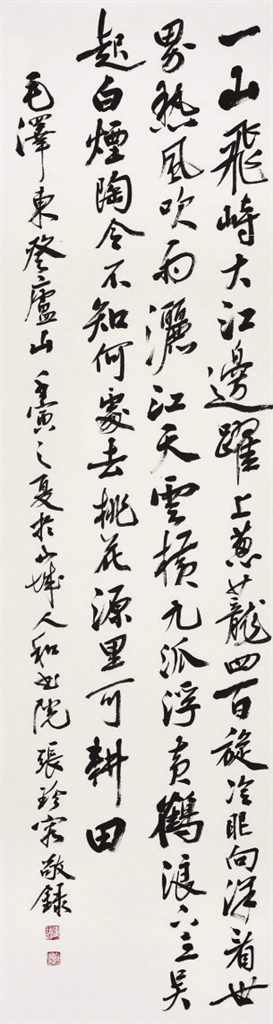 一山飛峙大江邊躍上蔥蘢四百旋冷眼向洋看世
界熱風吹雨灑江天雲橫九派浮黃鶴浪下三吳
起白煙陶令不知何處去桃花源里可耕田
毛澤東登廬山壬寅之夏於山城人和書院張珍容敬錄